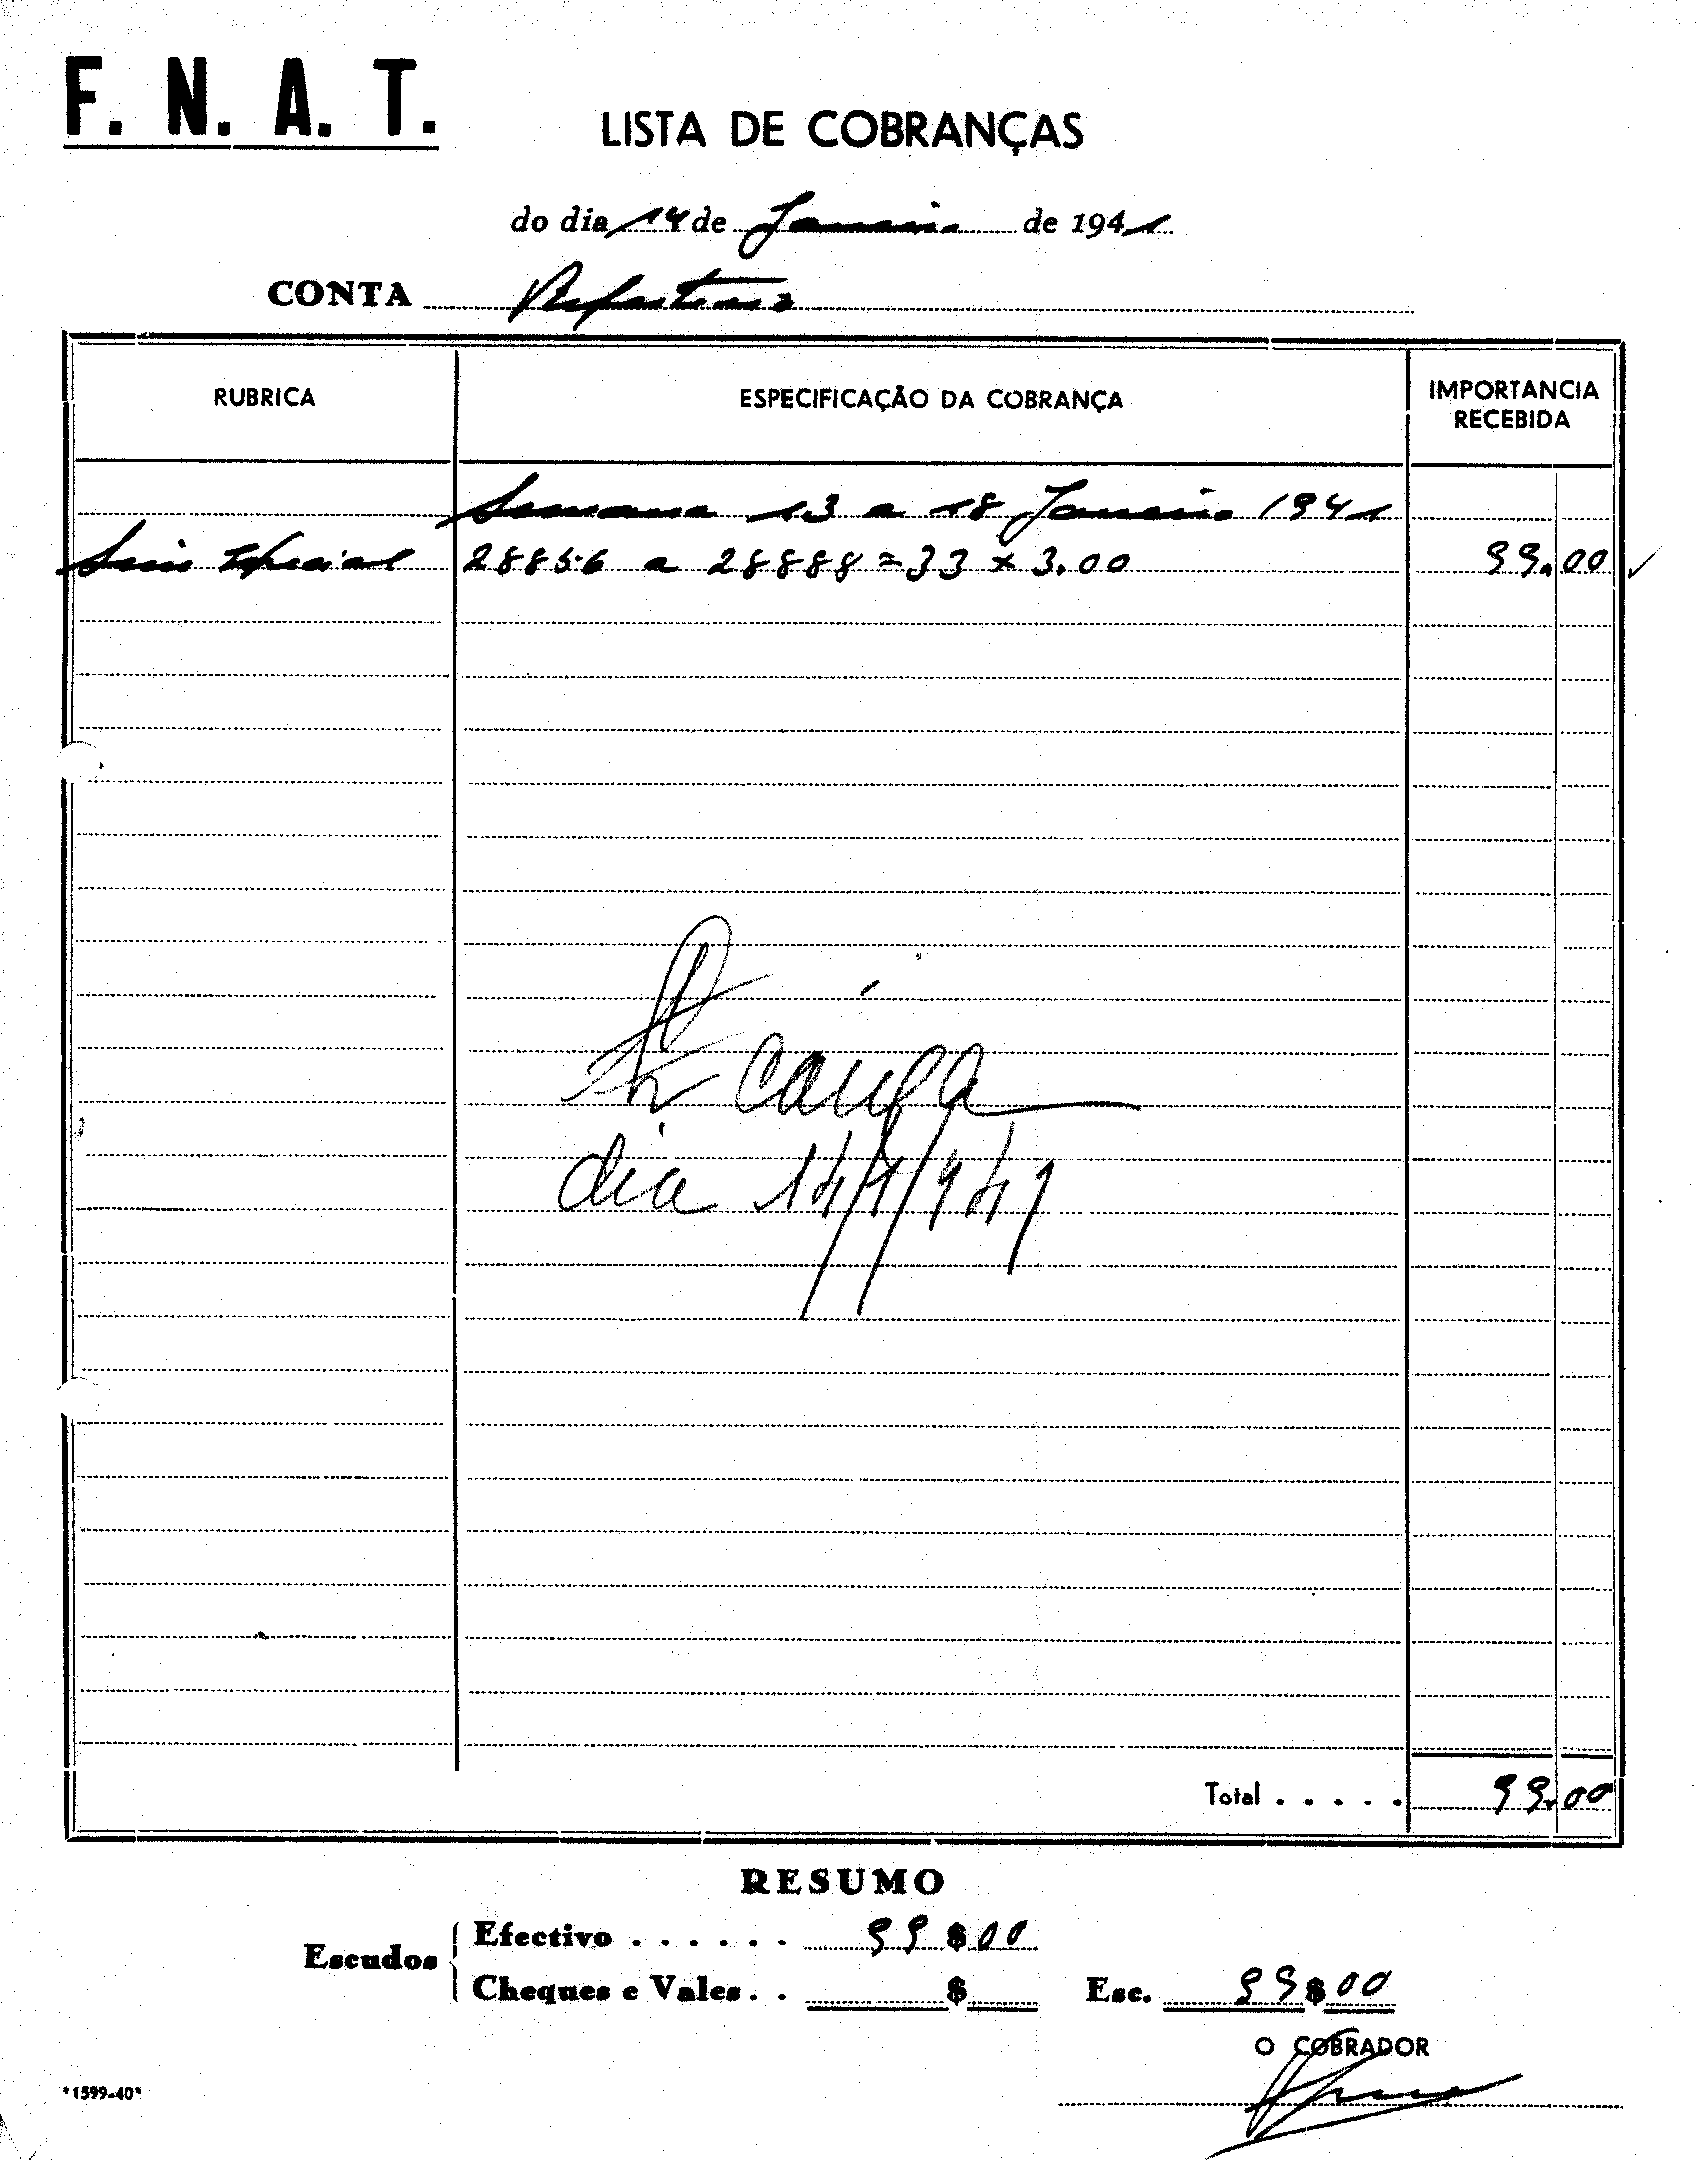 F. N. A. T.
LISTA DE COBRANÇAS
do dia 14 de Janeiro de 1941
CONTA Refeitorio
RUBRICA ESPECIFICAÇÃO DA COBRANÇA IMPORTANCIA RECEBIDA
Semana 13 a 18 Janeiro 1941
Seis especial 28856 a 28888 = 33 x 3.00 99.00
caixa
dia 14/1/941
Total . . . . . 99.00
RESUMO
Escudos
Efectivo . . . . . . 99$00
Cheques e Vales . . $ Esc. 99$00
O COBRADOR
*1599-40*